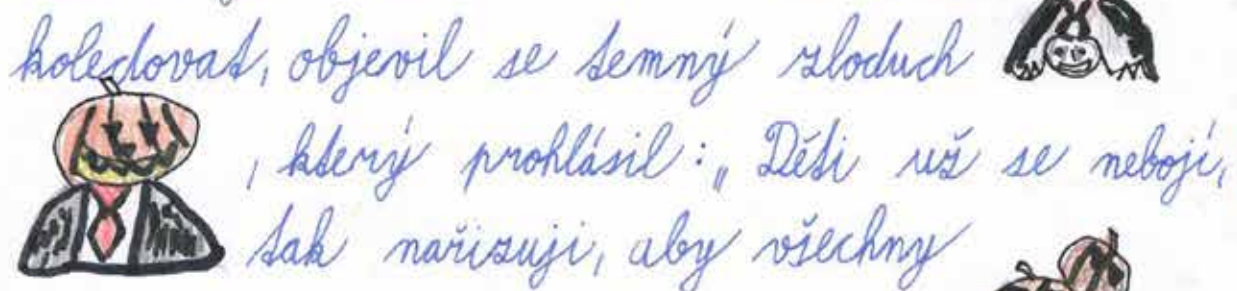 koledovat, objevil se temný zloduch
, který prohlásil: „Děti už se nebojí,
tak nařizuji, aby všechny